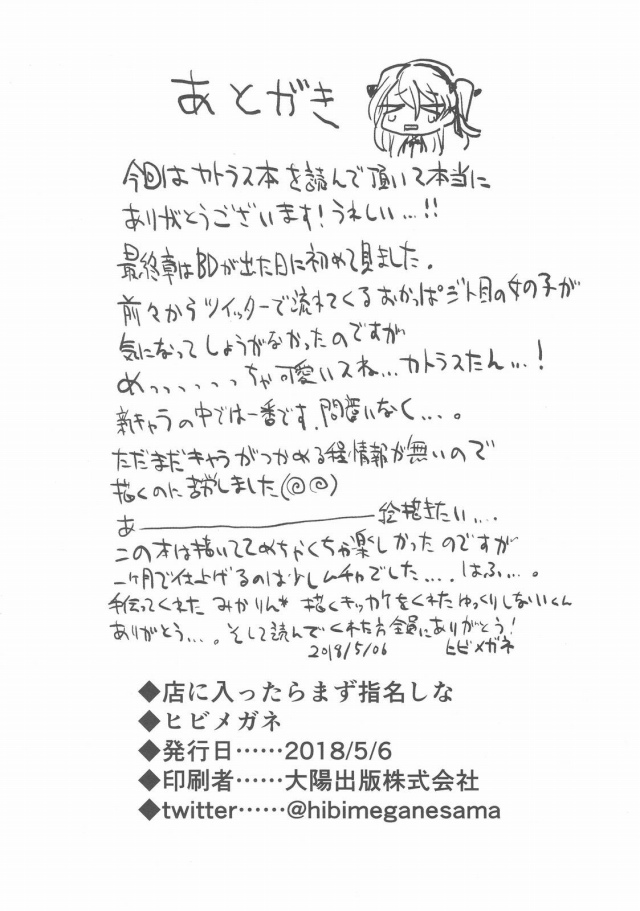 あとがき
今回はカトラス本を読んで頂いて本当に
ありがとうございます！うれしい…!!
最終章はBDが出た日に初めて見ました。
前々からツイッターで流れてくるおかっぱジト目の女の子が
気になってしょうがなかったのですが
めっっっっっっちゃ可愛いスね…カトラスたん…！
新キャラの中では一番です。間違いなく…。
ただまだキャラがつかめる程情報が無いので
描くのに苦労しました(＠＠)
あ――――――絵描きたい…
この本は描いててめちゃくちゃ楽しかったのですが
一ヶ月で仕上げるのは少しムチャでした…。はふ…。
手伝ってくれたみかりん* 描くキッカケをくれたゆっくりしないくん
ありがとう…。そして読んでくれた方全員にありがとう！
2018/5/06 ヒビメガネ
◆店に入ったらまず指名しな
◆ヒビメガネ
◆発行日……2018/5/6
◆印刷者……大陽出版株式会社
◆twitter……@hibimeganesama